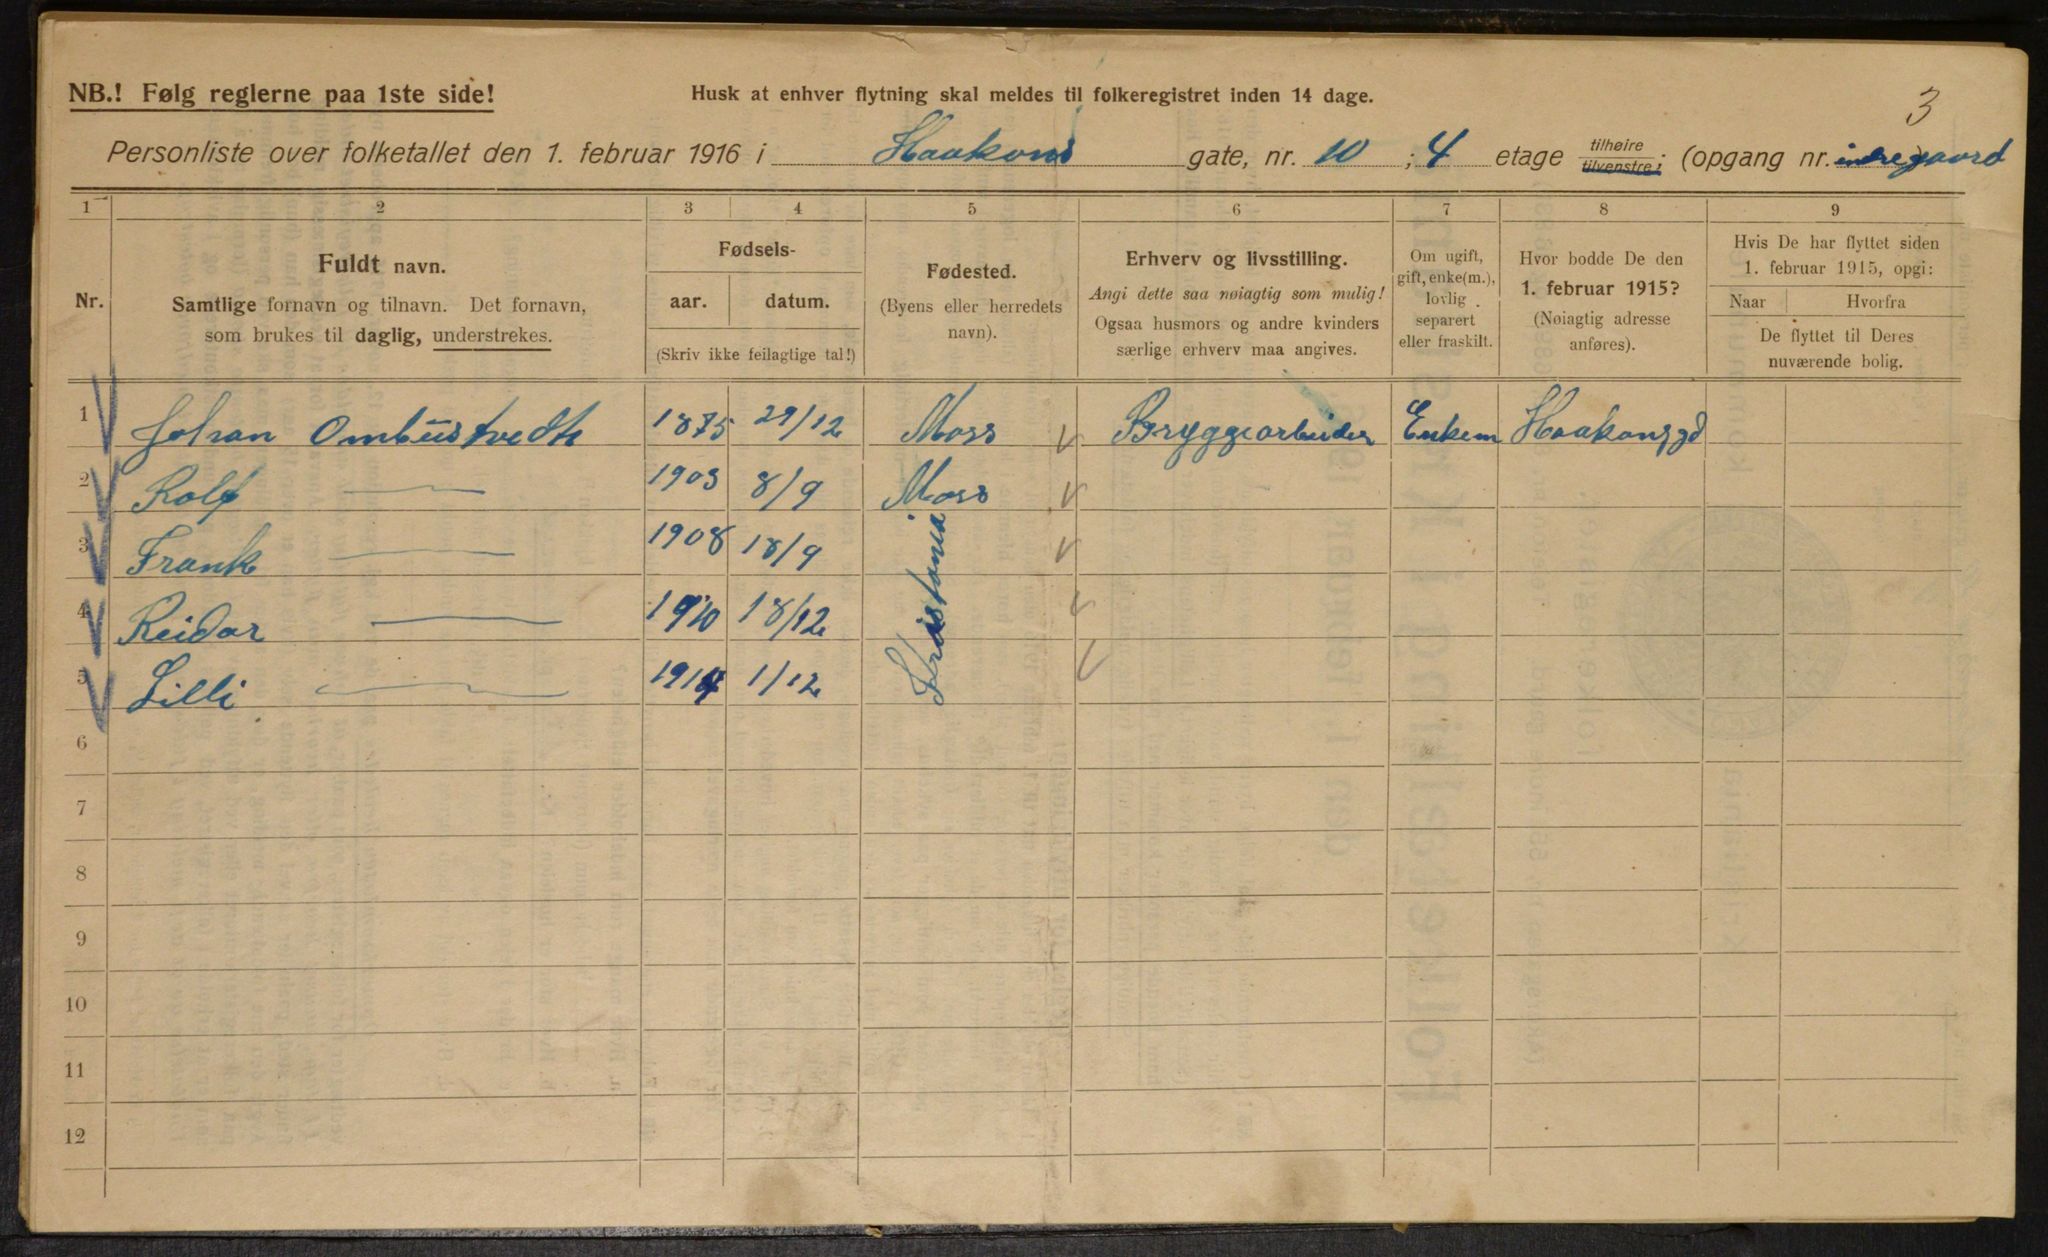 3
NB.! Følg reglerne paa 1ste side!
Husk at enhver flytning skal meldes til folkeregistret inden 14 dage.
Personliste over folketallet den 1. februar 1916 i Haakons gate, nr. 10 ; 4 etage tilhøire tilvenstre; (opgang nr. indregaard
1 2 3 4 5 6 7 8 9
Nr.
Fuldt navn.
Samtlige fornavn og tilnavn. Det fornavn,
som brukes til daglig, understrekes.
Fødsels-
aar. datum.
(Skriv ikke feilagtige tal!)
Fødested.
(Byens eller herredets
navn).
Erhverv og livsstilling.
Angi dette saa nøiagtig som mulig!
Ogsaa husmors og andre kvinders
særlige erhverv maa angives.
Om ugift,
gift, enke(m.),
lovlig
separert
eller fraskilt.
Hvor bodde De den
1. februar 1915?
(Nøiagtig adresse
anføres).
Hvis De har flyttet siden
1. februar 1915, opgi:
Naar Hvorfra
De flyttet til Deres
nuværende bolig.
1 Johan Ombustvedt 1875 29/12 Moss Bryggearbeider Enkem Haakonsgd
2 Rolf — 1903 8/9 Moss
3 Frank — 1908 18/9 Kristania
4 Reidar — 1910 18/12
5 Lilli — 1914 1/12
6
7
8
9
10
11
12